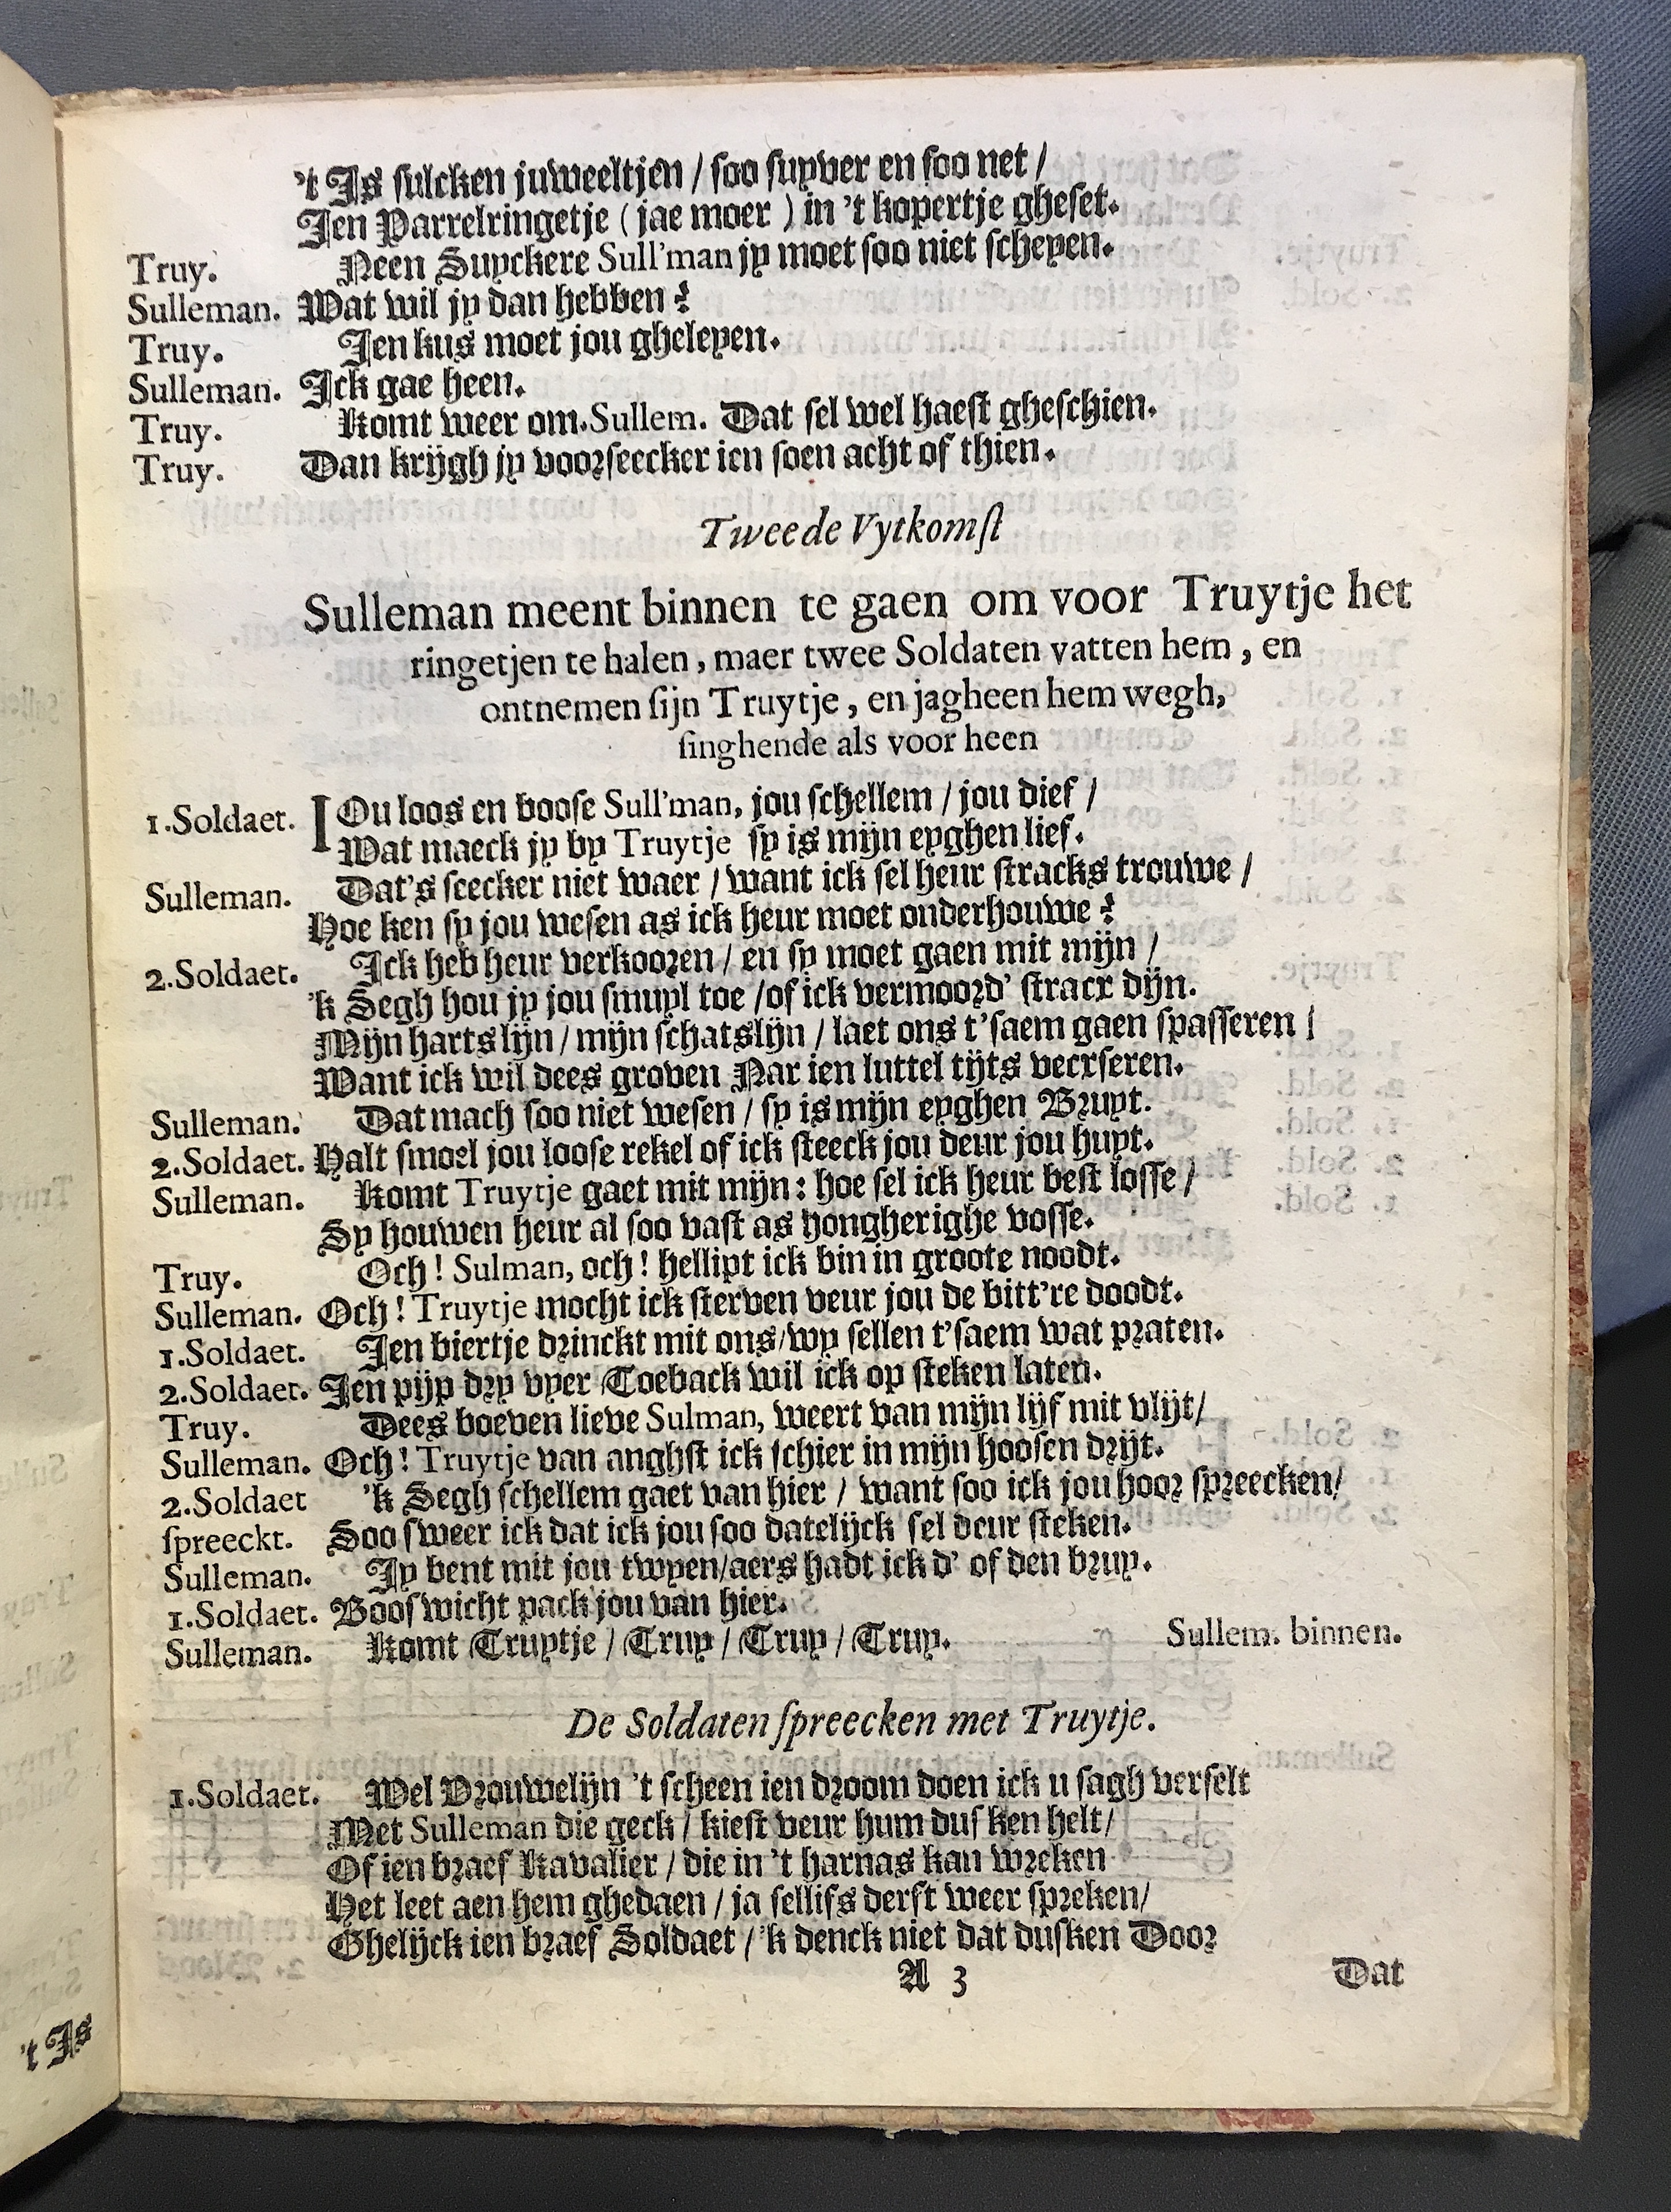 't Is sulcken juweeltjen / soo suyver en soo net /
Jen Parrelringetje ( jae moer ) in 't kopertje gheset.
Truy. Neen Suyckere Sull'man jy moet soo niet scheyen.
Sulleman. Wat wil jy dan hebben?
Truy. Jen kus moet jou gheleyen.
Sulleman. Ick gae heen.
Truy. Komt weer om. Sullem. Dat sel wel haest gheschien.
Truy. Dan krijgh jy voorseecker ien soen acht of thien.
Tweede Vytkomst
Sulleman meent binnen te gaen om voor Truytje het
ringetjen te halen, maer twee Soldaten vatten hem, en
ontnemen sijn Truytje, en jagheen hem wegh,
singhende als voor heen
1.Soldaet. IOu loos en boose Sull'man, jou schellem / jou dief /
Wat maeck jy by Truytje sy is mijn eyghen lief.
Sulleman. Dat's seecker niet waer / want ick sel heur stracks trouwe /
Hoe ken sy jou wesen as ick heur moet onderhouwe?
2.Soldaet. Ick heb heur verkooren / en sy moet gaen mit mijn /
'k Segh hou jy jou smuyl toe / of ick vermoord' stracx dijn.
Mijn hartslijn / mijn schatslijn / laet ons t'saem gaen spasseren /
Want ick wil dees groven Nar ien luttel tijts vecxseren.
Sulleman. Dat mach soo niet wesen / sy is mijn eyghen Bruyt.
2.Soldaet. Halt smoel jou loose rekel of ick steeck jou deur jou huyt.
Sulleman. Komt Truytje gaet mit mijn: hoe sel ick heur best losse /
Sy houwen heur al soo vast as hongherighe vosse.
Truy. Och! Sulman, och! hellipt ick bin in groote noodt.
Sulleman. Och! Truytje mocht ick sterven veur jou de bitt're doodt.
1.Soldaet. Jen biertje drinckt mit ons / wy sellen t'saem wat praten.
2.Soldaet. Jen pijp dry vyer Toeback wil ick op steken laten.
Truy. Dees boeven lieve Sulman, weert van mijn lijf mit vlijt /
Sulleman. Och! Truytje van anghst ick schier in mijn hoosen drijt.
2.Soldaet 'k Segh schellem gaet van hier / want soo ick jou hoor spreecken /
spreeckt. Soo sweer ick dat ick jou soo datelijck sel deur steken.
Sulleman. Jy bent mit jou twyen / aers hadt ick d' of den bruy.
1.Soldaet. Booswicht pack jou van hier.
Sulleman. Komt Truytje / Truy / Truy / Truy. Sullem. binnen.
De Soldaten spreecken met Truytje.
1.Soldaet. Wel Vrouwelijn 't scheen ien droom doen ick u sagh verselt
Met Sulleman die geck / kiest veur hum dus ken helt /
Of ien braef Kavalier / die in 't harnas kan wreken
Het leet aen hem ghedaen / ja sellifs derft weer spreken /
Ghelijck ien braef Soldaet / 'k denck niet dat dusken Door
A 3 Dat
't Is